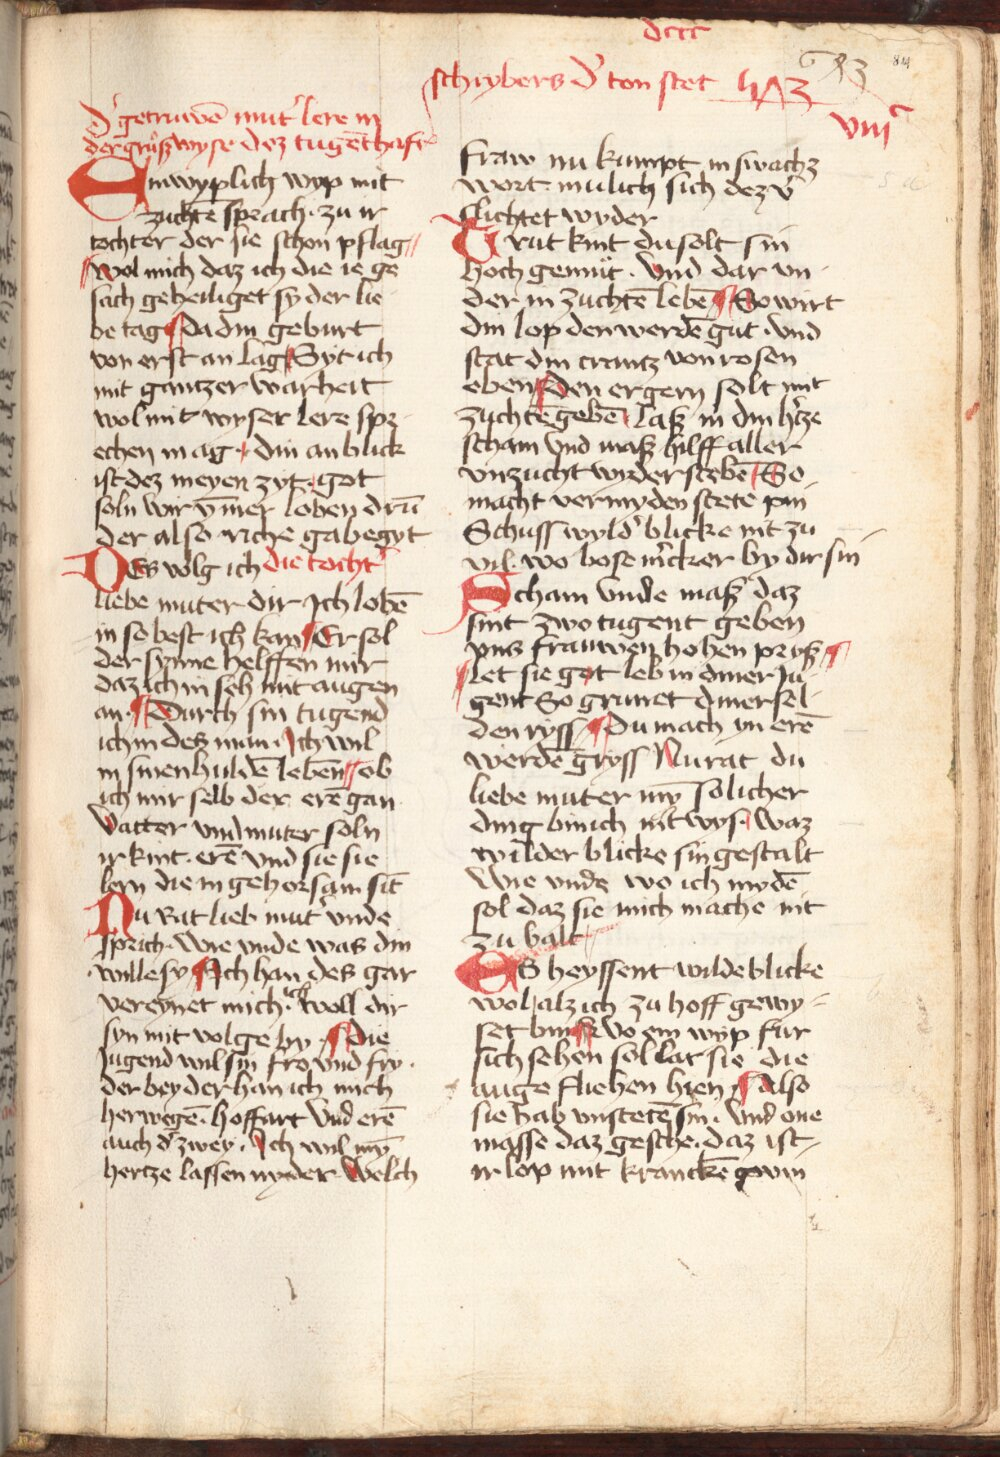 dccc
schrybers d' ton stet
814
viii
d' getruwē mut' lere in
der gruß wyse dez tugēthaftē
Ein wyplich wyp mit
zuchte sprach · zu ir
tochter der sie schon pflag
wol mich daz ich die ie ge
sach geheiliget sy der lie
be tag Da din geburt
von erst an lag Syt ich
mit gantzer warheit
wol mit wyser lere spr
echen mag · din an blick
ist dez meyen zyt · got
soln wir ȳmer loben drū
der also riche gabe gyt
Des volg ich die tocht'
liebe muter dir Ich lobē
in so best ich kan Er sol
der synne helffen mir
daz ich in seh mit augen
an · Durch sin tugend
ich in des man · Ich wil
in sinen huldē leben ob
ich mir selb der erē gan
Vatter vnd muter soln
ir kint · erē vnd sie sie
lern die in gehorsam sīt
Nu Rat lieb mut' vnde
sprich · Wie vnde was din
wille sy Ich han des gar
vereynet mich · ich woll dir
syn mit volge by · Die
Jugend wil sin fro vnd fry ·
der beyder han ich mich
herwegē · hoffart vnd erē
auch d' zwey · Ich wil mȳ
hertze lassen nyder Welch
fraw nu kumpt in swachz
wort · mulich sich dez v'
slichtet wyder
Trut kint du solt sin
hoch gemüt · Vnd dar vn
der in zuchtē lebē So wirt
din lop den werdē gut · vnd
stat din crantz von rosen
eben Den ergern solt mit
zuchtē gebē laß in din h'tze
scham vnd maß hilff aller
vnzucht wyder strebē So
macht vermyden stete pin
Schuss wyld' blicke nit zu
vil · wo bose m'cker by dir sin
Scham vnde maß daz
sint zwo tugent geben
vns frauwen hohen pryß
Let sie got leb in diner Ju
gent So grunet diner sel
den ryss Du mach yn erē
werdē gryss Nu rat du
liebe muter mȳ solicher
ding bin ich nit wys · Waz
wilder blicke sin gestalt
Wie vnde wo ich mydē
sol daz sie mich mache nit
zu balt
Es heyssent wilde blicke
wol alz ich zu hoff gewy
set bin Wo ein wyp fur
sich sehen sol lat sie die
auge fliehen hien Also
sie hab vnstetē sin · Vnd one
masse daz geschē · daz ist
ir lop mit kranckē gwin